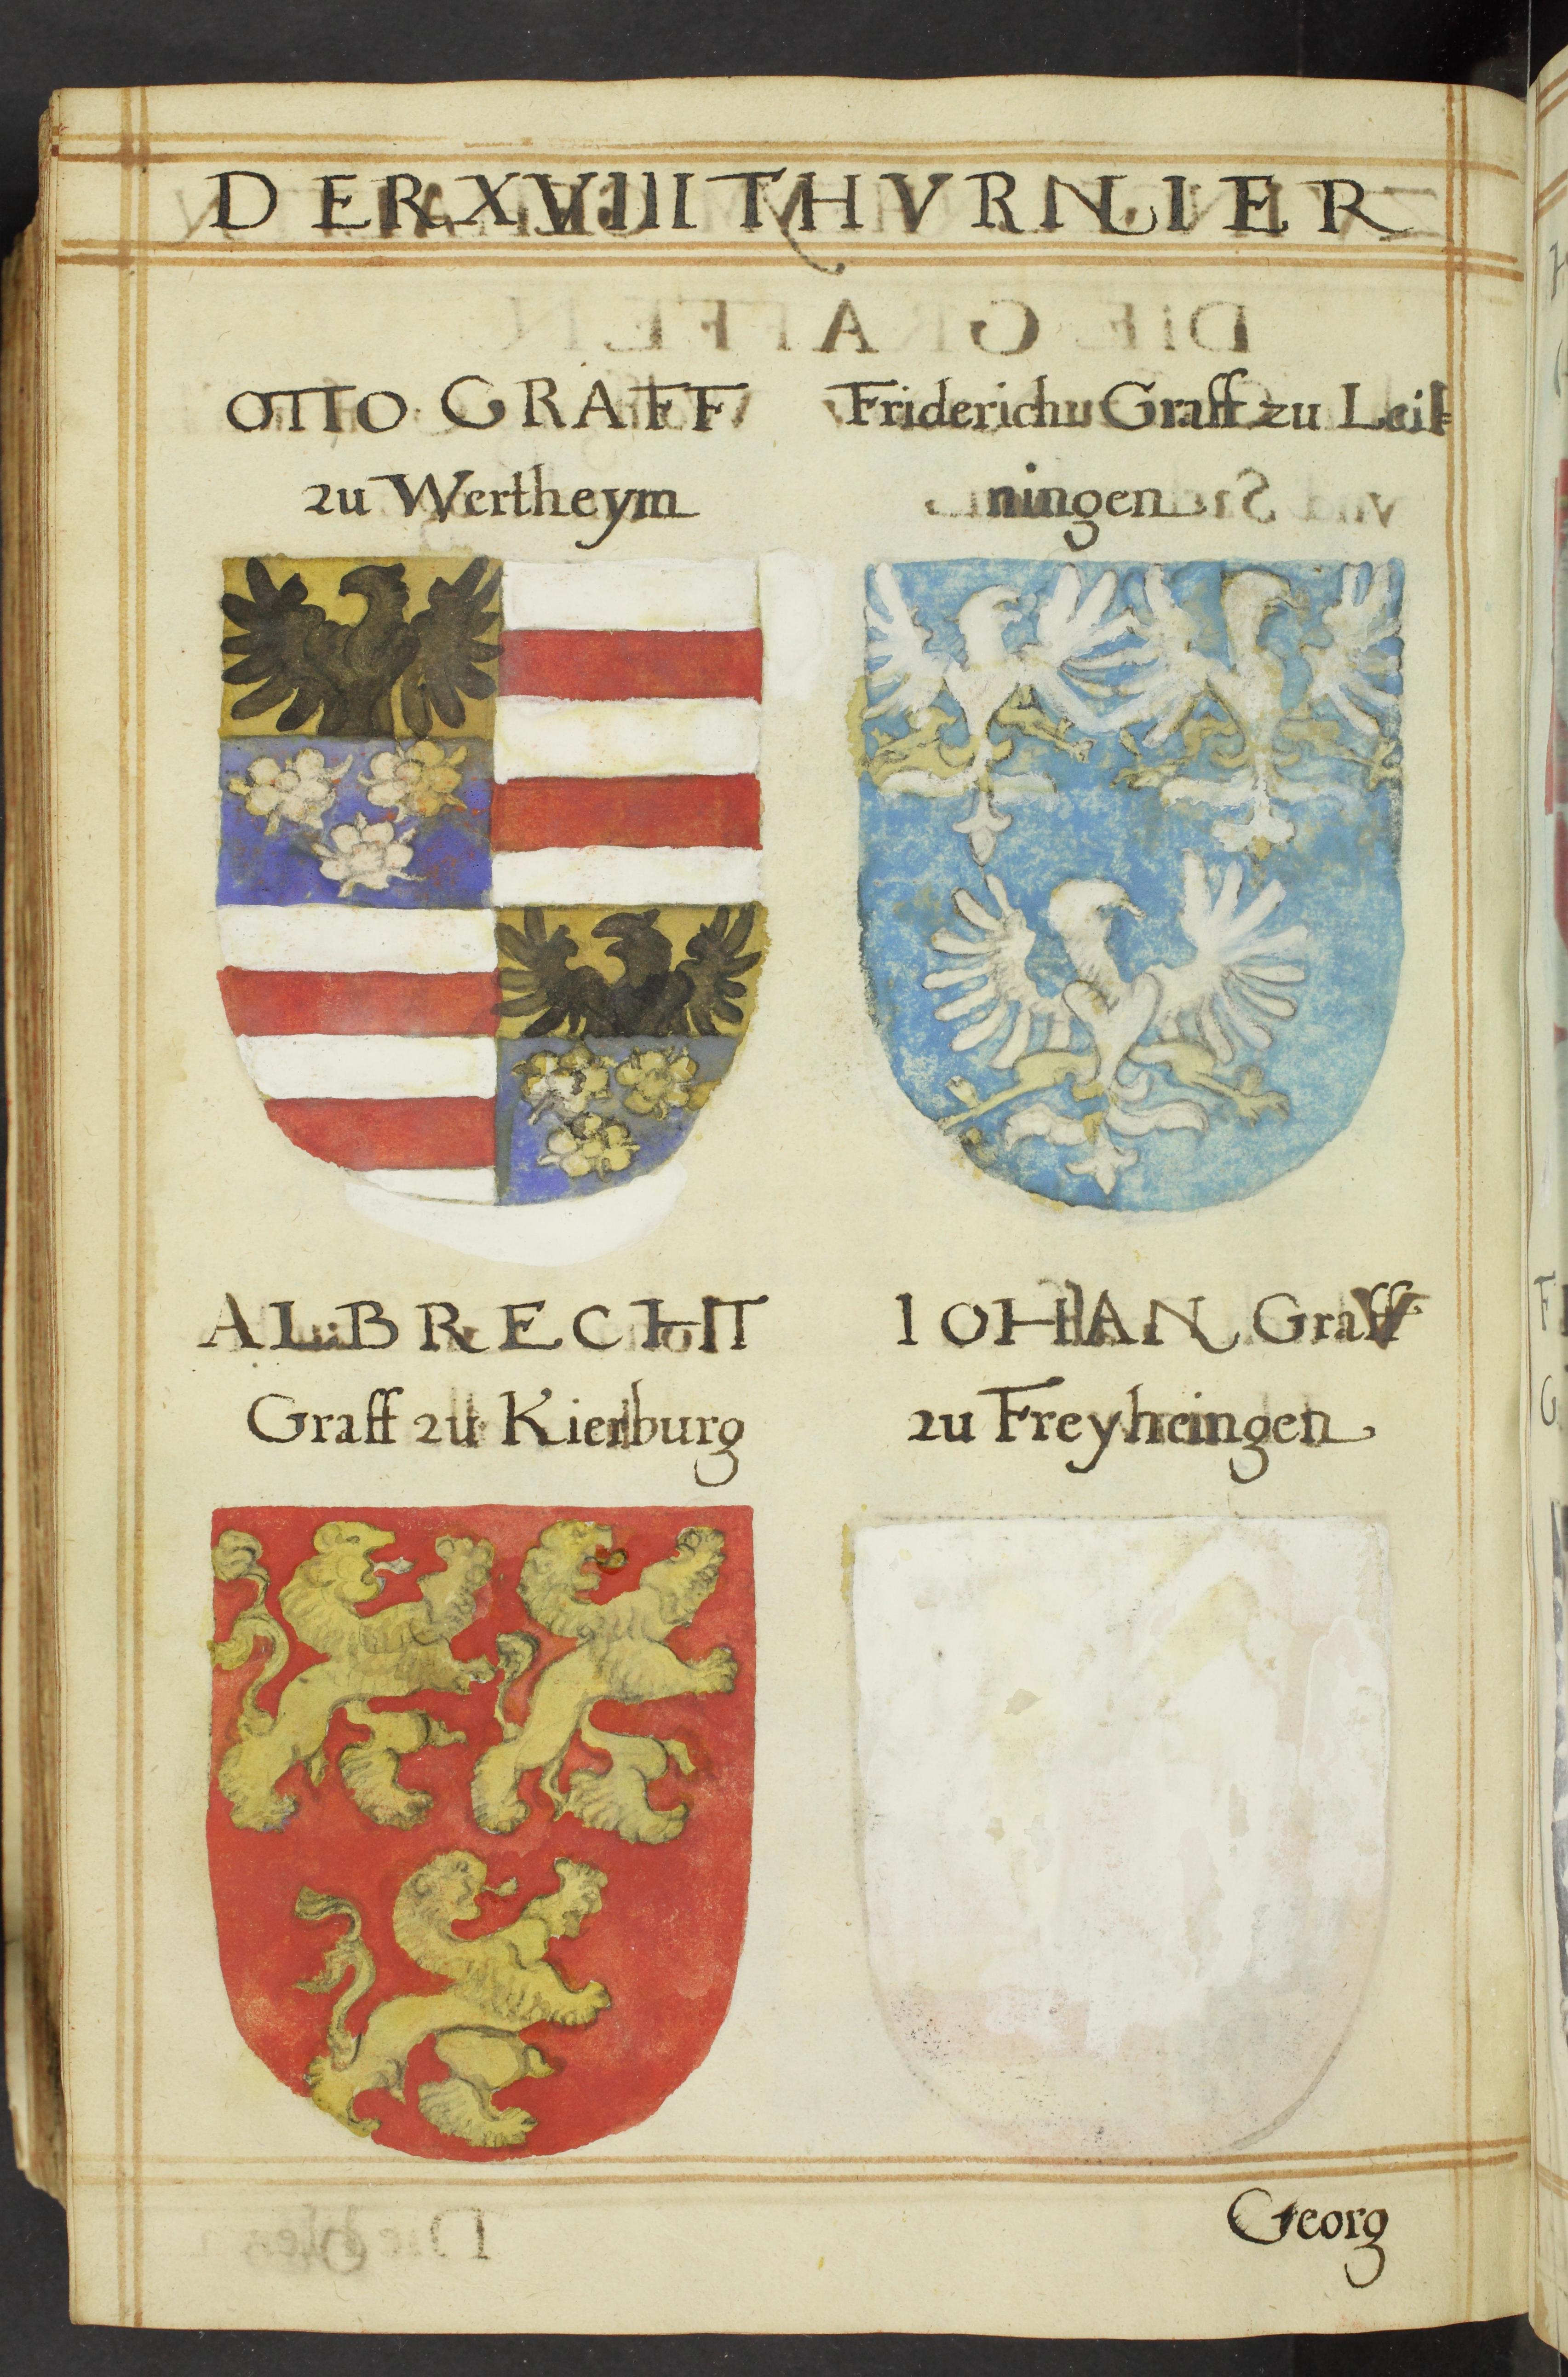 DER XVIIII THVRNIER
OTTO GRAFF
zu Wertheym
Friderich Graff zu Lei-
ningen
ALBRECHT
Graff zu Kierburg
IOHAN Graff
zu Freyheingen
Georg